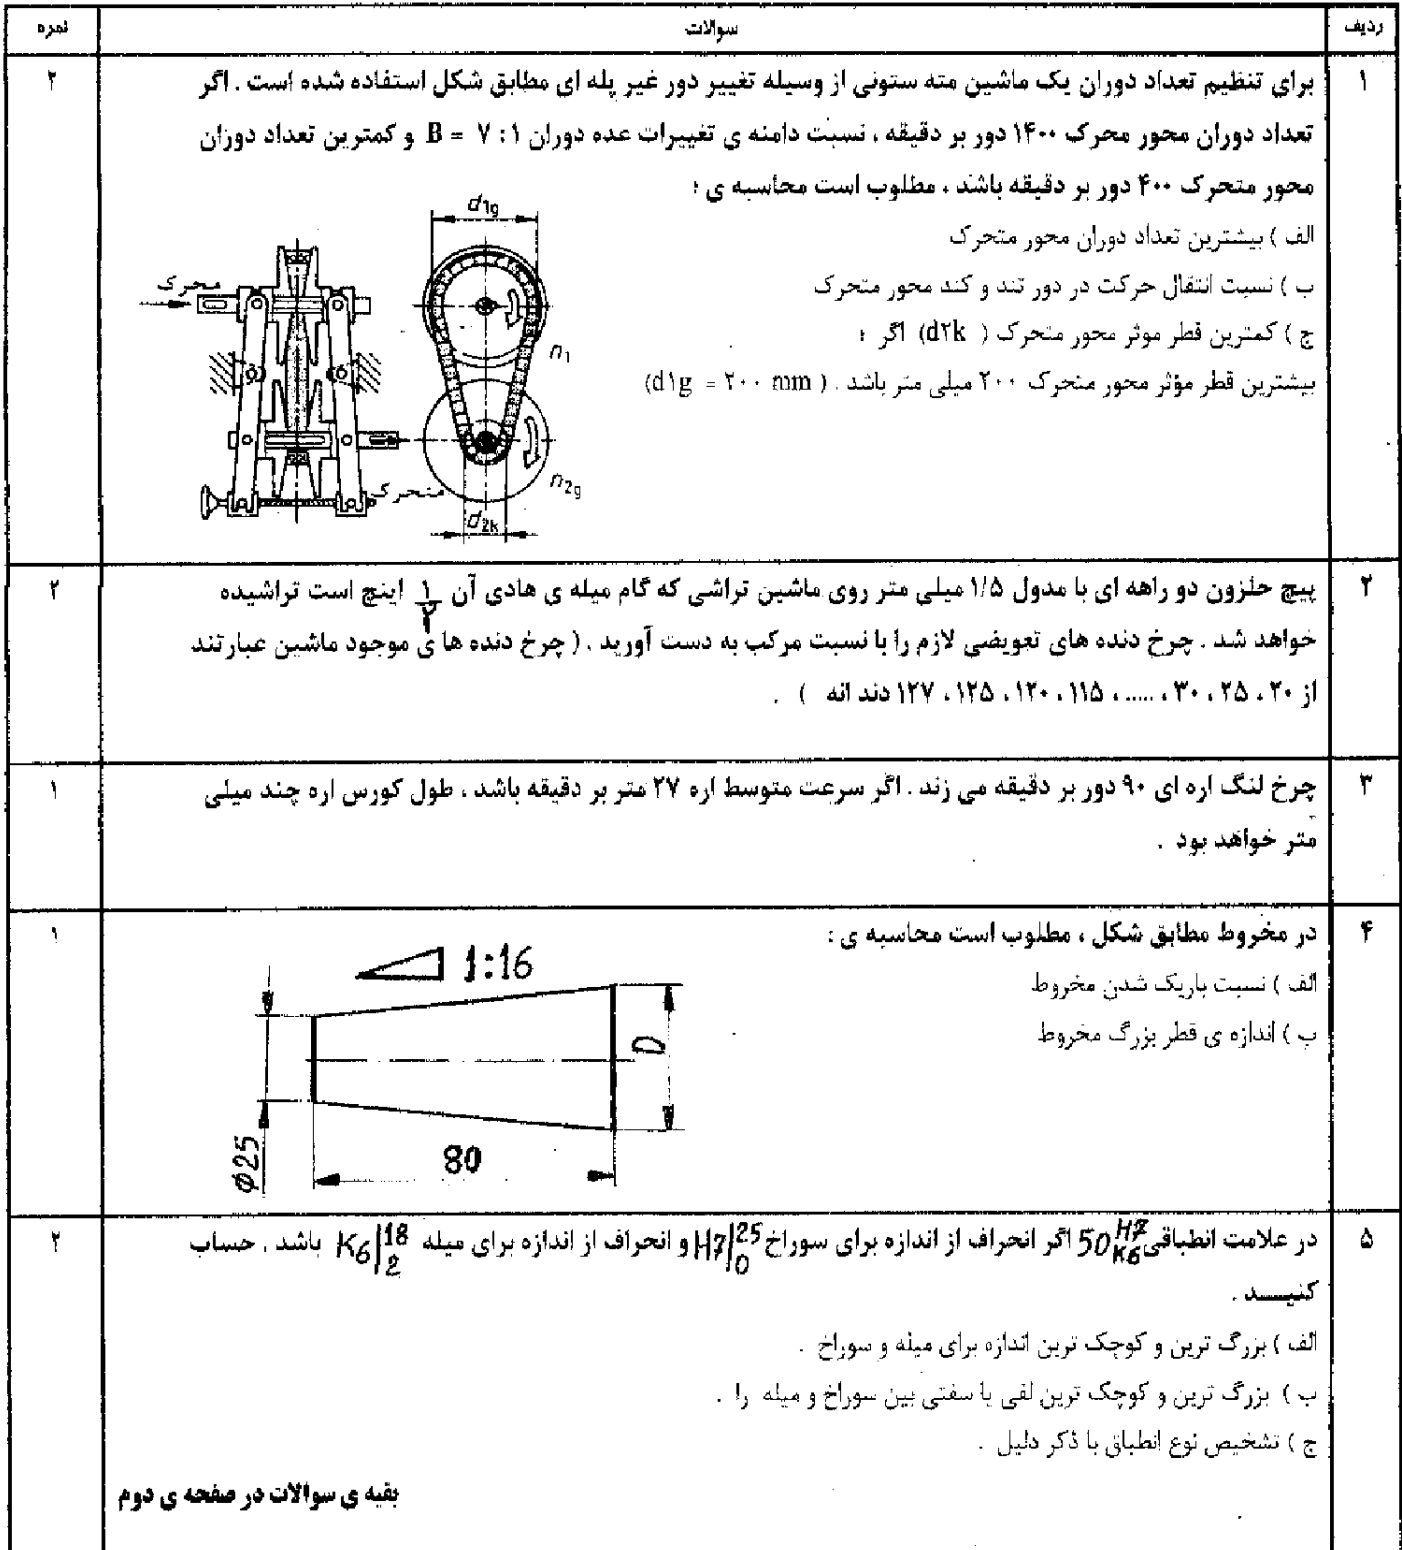 ردیف
سوالات
نمره
۱
برای تنظیم تعداد دوران یک ماشین مته ستونی از وسیله تغییر دور غیر پله ای مطابق شکل استفاده شده است . اگر
۲
تعداد دوران محور محرک ۱۴۰۰ دور بر دقیقه ، نسبت دامنه ی تغییرات عده دوران B = ۷ : ۱ و کمترین تعداد دوران
محور متحرک ۴۰۰ دور بر دقیقه باشد ، مطلوب است محاسبه ی :
الف ) بیشترین تعداد دوران محور متحرک
ب ) نسبت انتقال حرکت در دور تند و کند محور متحرک
ج ) کمترین قطر موثر محور متحرک ( d۲k) اگر :
بیشترین قطر مؤثر محور متحرک ۲۰۰ میلی متر باشد . ( d۱g = ۲۰۰ mm)
محرک
متحرک
d1g
n1
n2g
d2k
۲
پیچ حلزون دو راهه ای با مدول ۱/۵ میلی متر روی ماشین تراشی که گام میله ی هادی آن ۱/۲ اینچ است تراشیده
۲
خواهد شد . چرخ دنده های تعویضی لازم را با نسبت مرکب به دست آورید . ( چرخ دنده ها ی موجود ماشین عبارتند
از ۲۰ ، ۲۵ ، ۳۰ ، ..... ، ۱۱۵ ، ۱۲۰ ، ۱۲۵ ، ۱۲۷ دند انه ) .
۳
چرخ لنگ اره ای ۹۰ دور بر دقیقه می زند . اگر سرعت متوسط اره ۲۷ متر بر دقیقه باشد ، طول کورس اره چند میلی
۱
متر خواهد بود .
۴
در مخروط مطابق شکل ، مطلوب است محاسبه ی :
۱
الف ) نسبت باریک شدن مخروط
ب ) اندازه ی قطر بزرگ مخروط
1:16
D
80
Ø25
۵
در علامت انطباقی 50 H7/K6 اگر انحراف از اندازه برای سوراخ H7|25 0 و انحراف از اندازه برای میله K6|18 2 باشد . حساب
۲
کنیــــد .
الف ) بزرگ ترین و کوچک ترین اندازه برای میله و سوراخ .
ب ) بزرگ ترین و کوچک ترین لقی یا سفتی بین سوراخ و میله را .
ج ) تشخیص نوع انطباق با ذکر دلیل .
بقیه ی سوالات در صفحه ی دوم